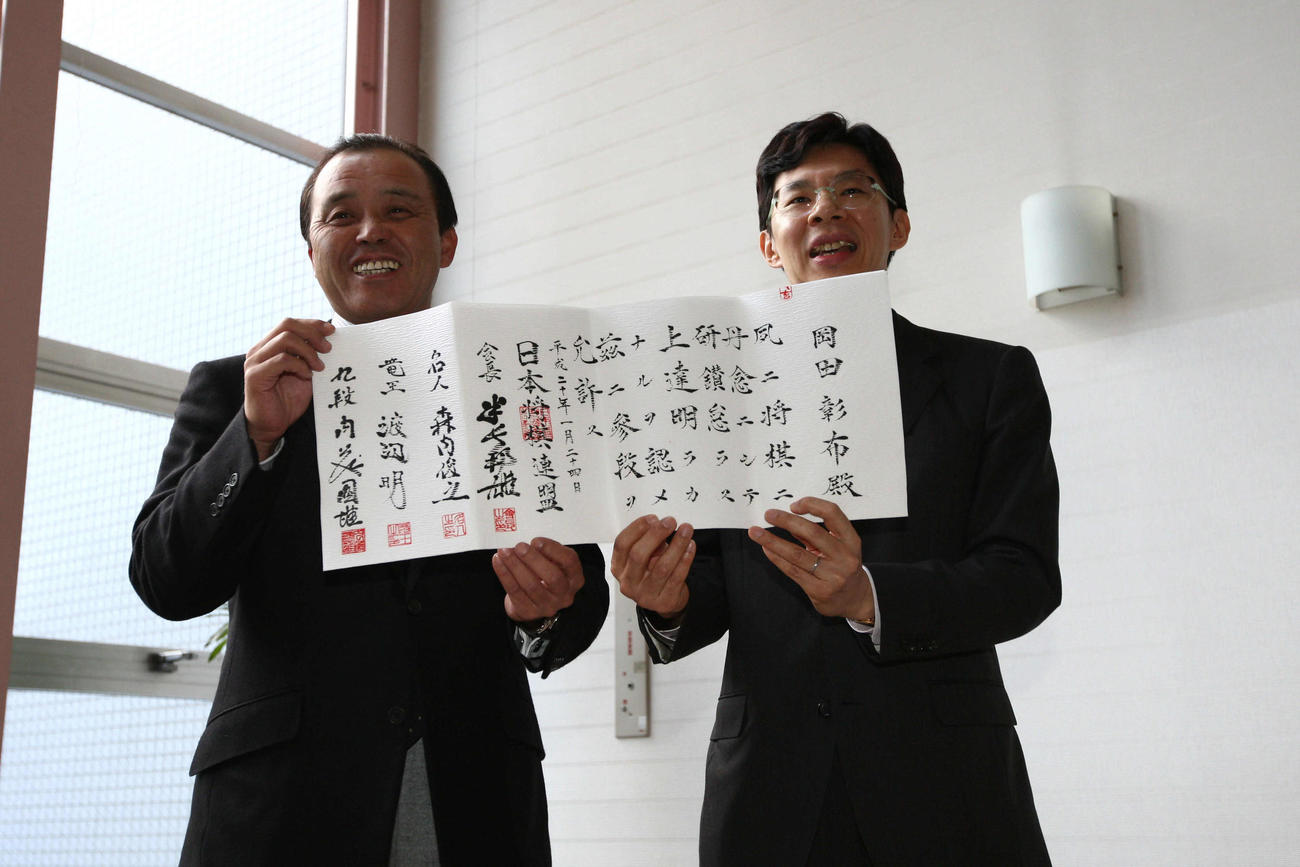 岡田彰布殿
夙ニ将棋ニ
丹念ニシテ
研鑚怠ラス
上達明ラカ
ナルヲ認メ
茲ニ参段ヲ
允許ス
平成二十年一月二十四日
日本将棋連盟
会長 米長邦雄
名人 森内俊之
竜王 渡辺明
九段 内藤國雄